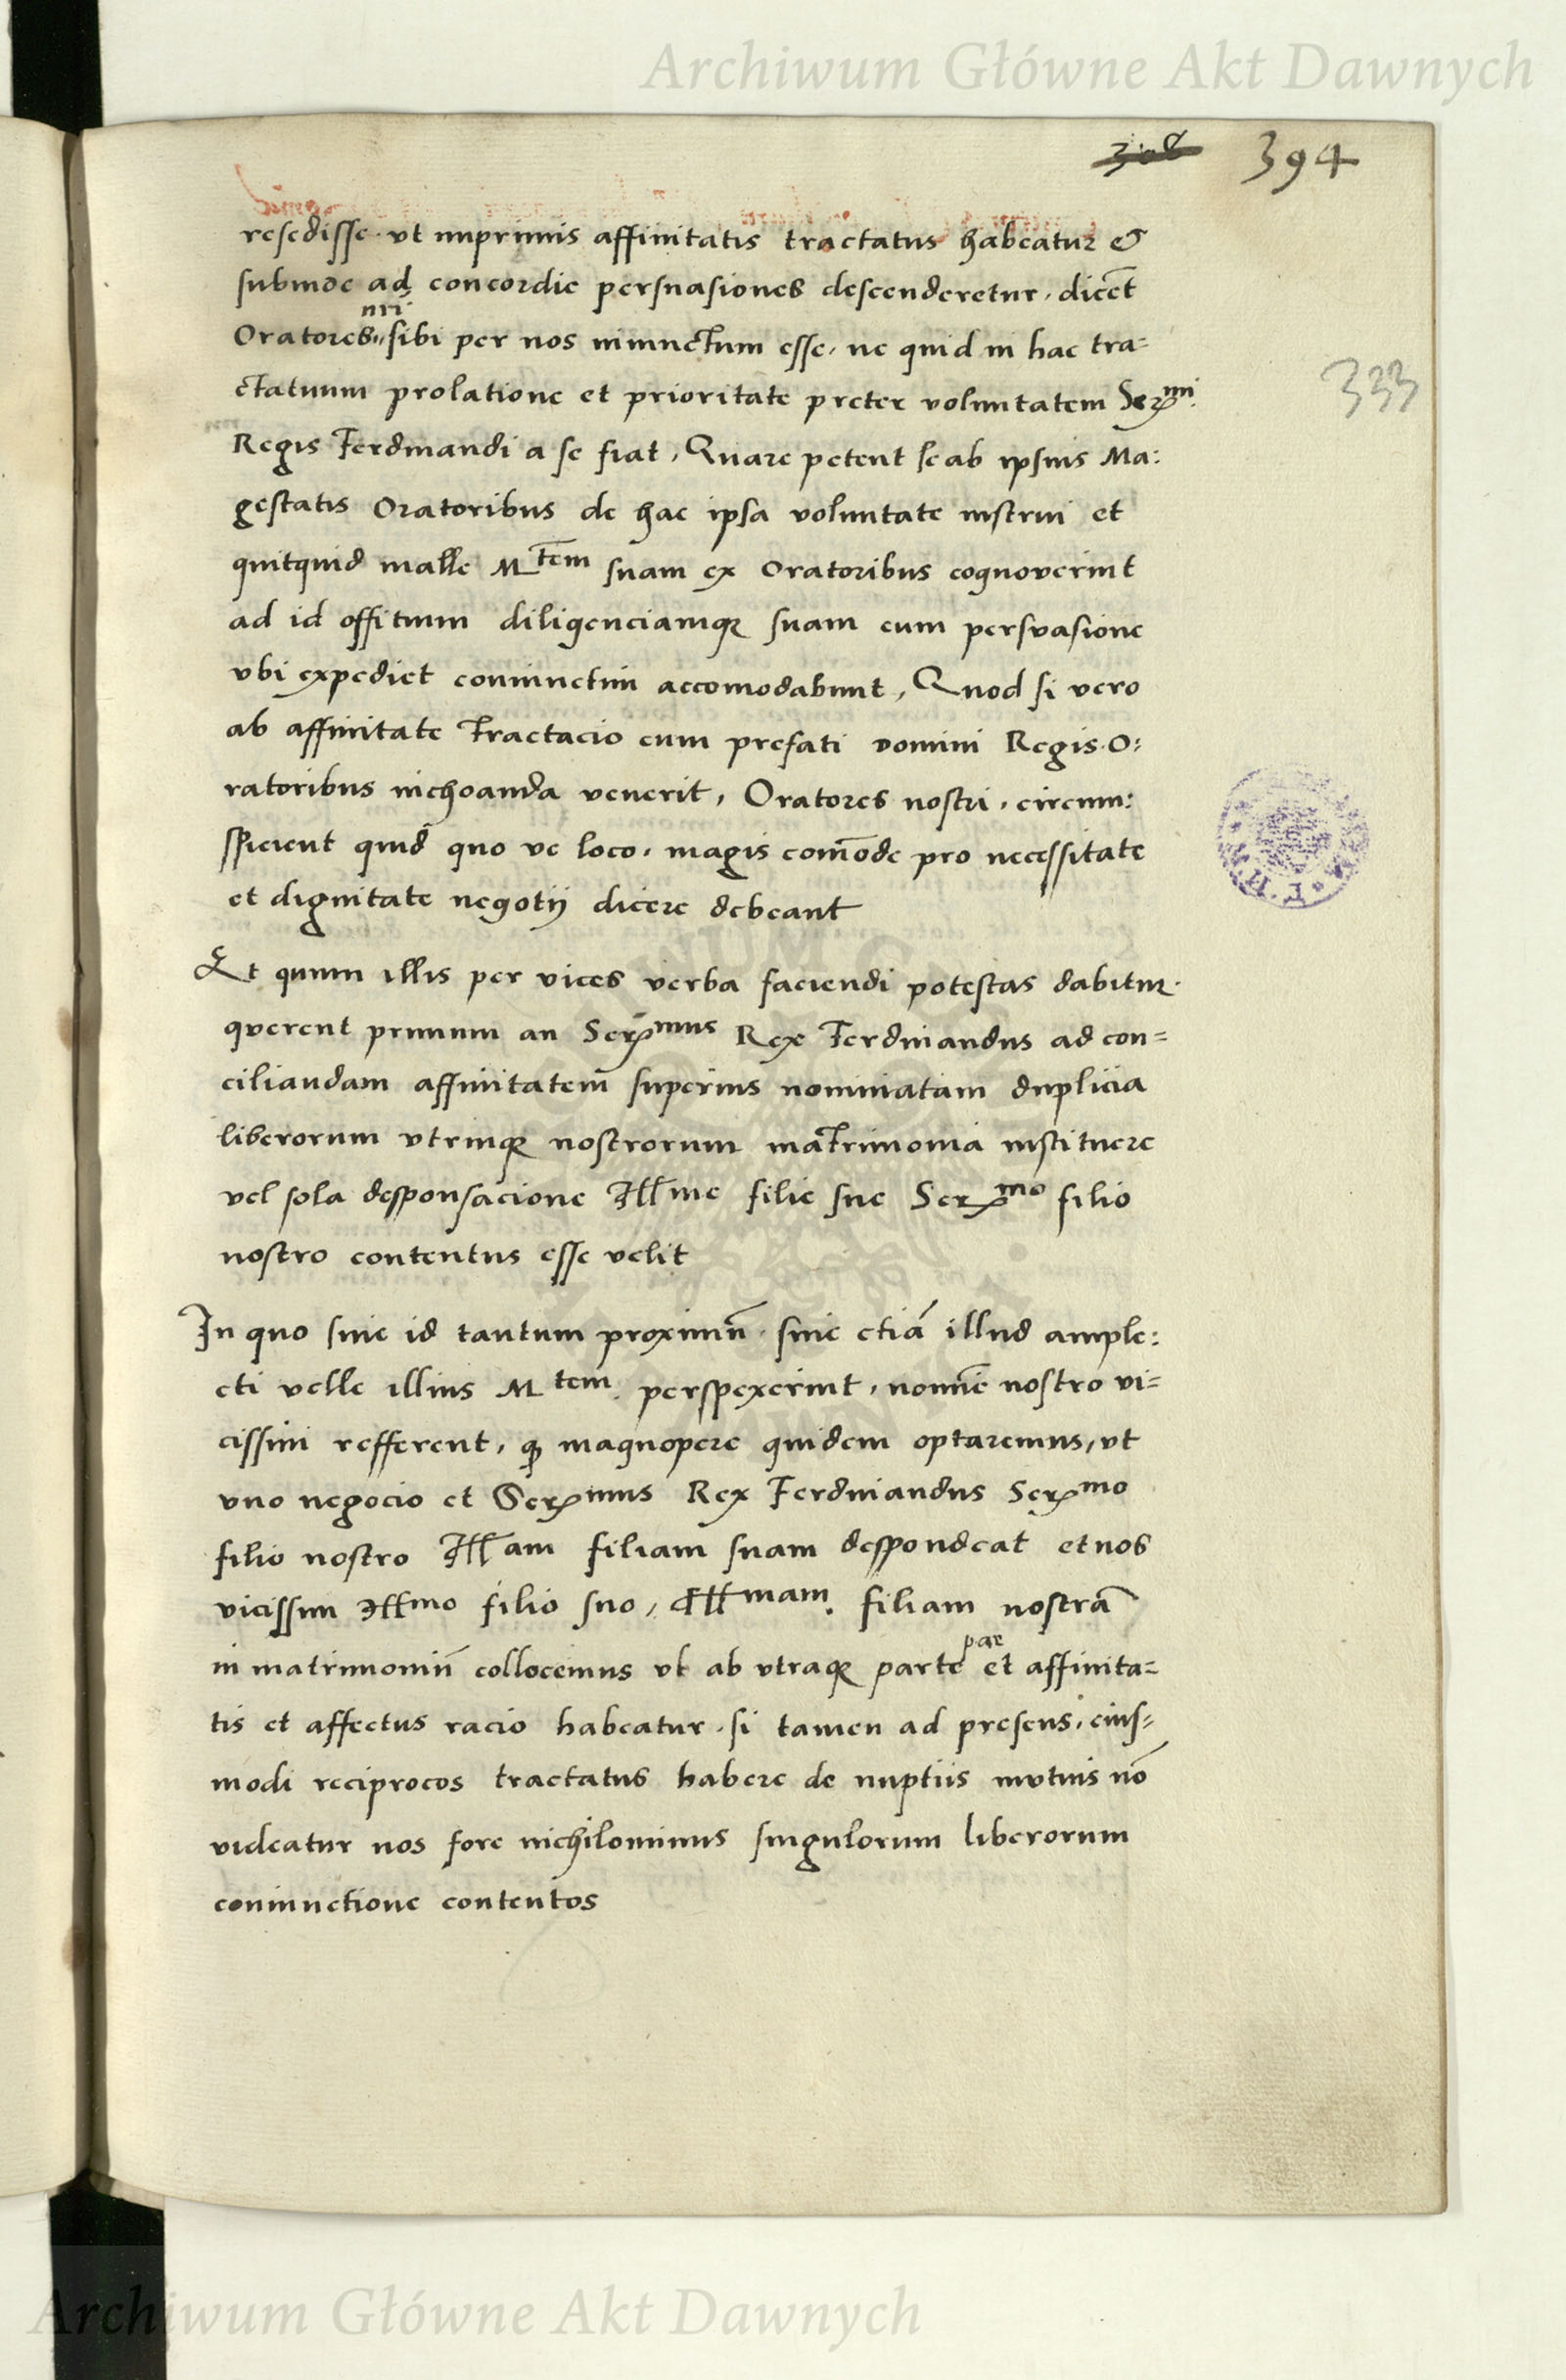 Archiwum Główne Akt Dawnych
394
resedisse. ut inprimis affinitatis tractatus habeatur &
subinde ad concordie persuasiones descenderetur, dicēt
nri
Oratores sibi per nos iniunctum esse, ne quid in hac tra=
333
ctatuum prolatione et prioritate preter voluntatem Serᵐⁱ
Regis Ferdinandi a se fiat, Quare petent se ab ipsius Ma:
gestatis Oratoribus de hac ipsa voluntate instrui et
quitquid malle Mᵗᵉᵐ suam ex Oratoribus cognoverint
ad id offitium diligenciamqꝫ suam cum persvasione
vbi expediet coniunctim accomodabunt, Quod si vero
ab affinitate Tractacio cum prefati domini Regis O:
ratoribus inchoanda venerit, Oratores nostri, circum:
spicient quid quo ve loco, magis com̄ode pro necessitate
et dignitate negotij dicere debeant
Et quum illis per vices verba faciendi potestas dabitur.
querent primum an Serᵐᵘˢ Rex Ferdinandus ad con=
ciliandam affinitatem superius nominatam duplicia
liberorum vtrinqꝫ nostrorum matrimonia instituere
vel sola desponsacione Illme filie sue Serᵐᵒ filio
nostro contentus esse velit
In quo sive id tantum proximū. sive etiā illud ample:
cti velle illius Mᵗᵉᵐ. perspexerint, noīne nostro vi=
cissim refferent, ꝙ magnopere quidem optaremus, vt
vno negocio et Serᵐᵘˢ Rex Ferdinandus Serᵐᵒ
filio nostro Illam filiam suam despondeat et nos
vicissim Illmo filio suo, Illᵐᵃᵐ. filiam nostrā
in matrimoniū collocemus vt ab vtraqꝫ parte et affinita=
par
tis et affectus racio habeatur. si tamen ad presens, eius=
modi reciprocos tractatus habere de nuptiis mutuis nō
videatur nos fore nichilominus singulorum liberorum
coniunctione contentos
Archiwum Główne Akt Dawnych